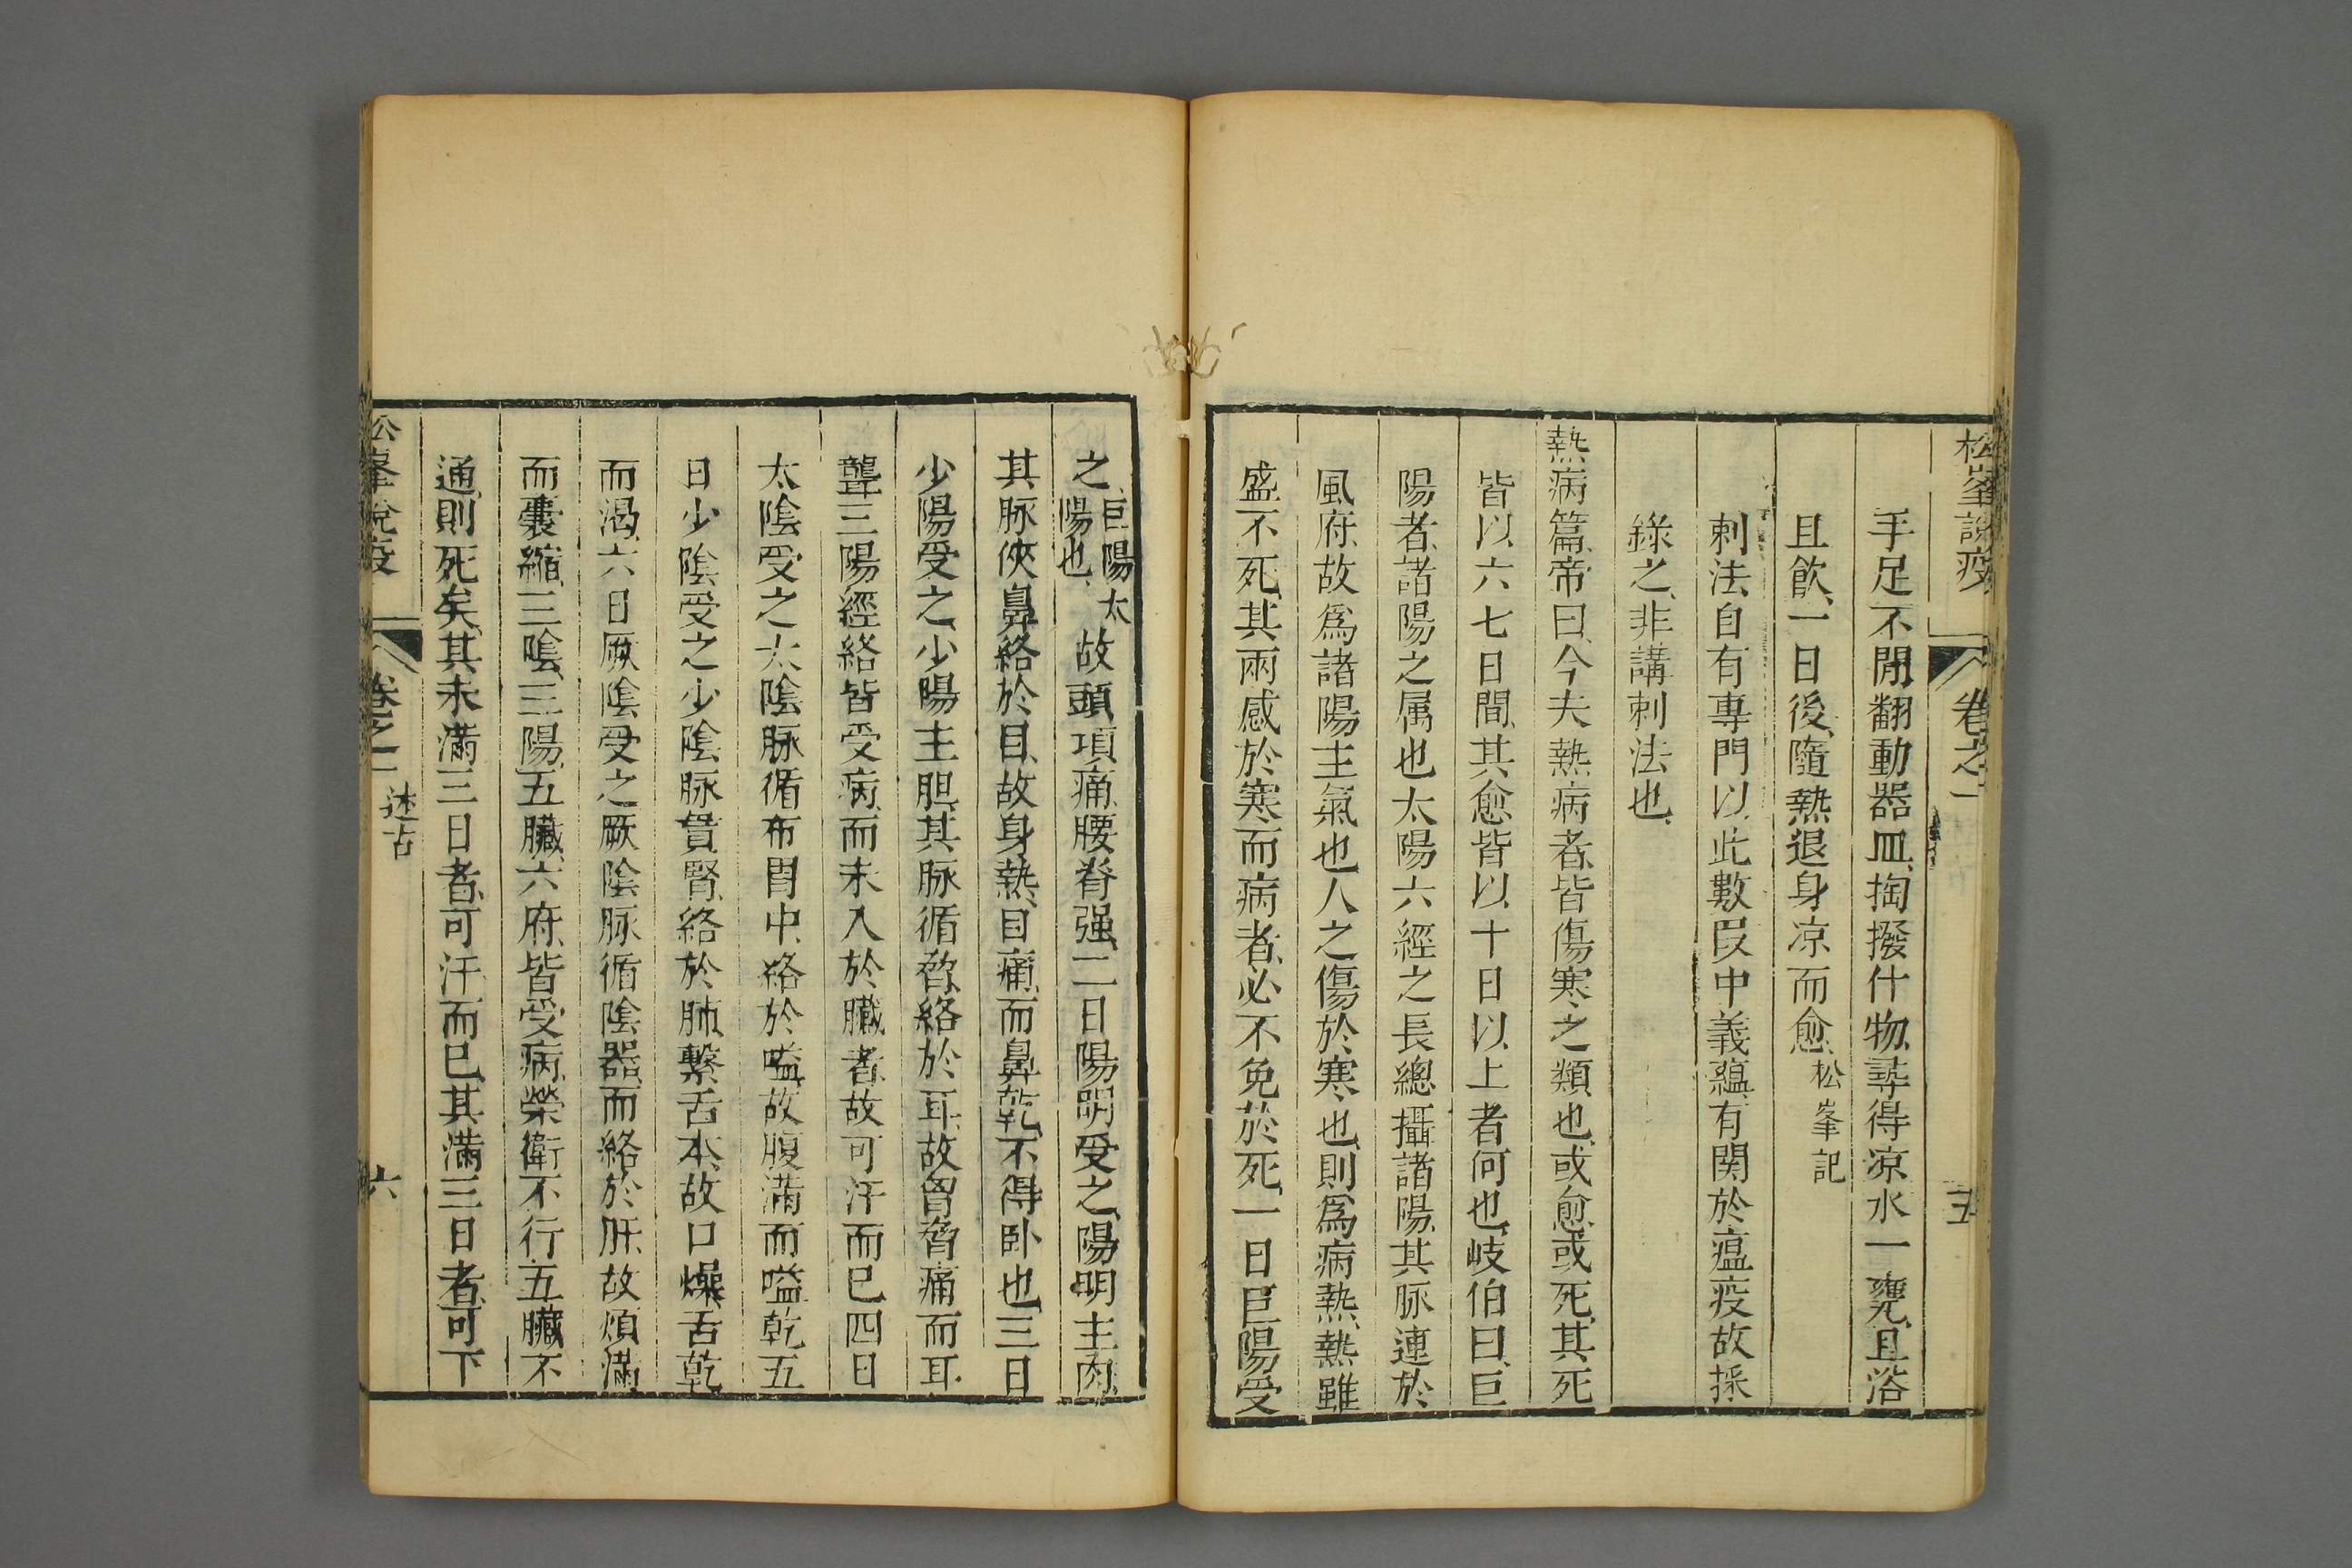 松峯說疫 卷之一 五
手足不閒、翻動器皿、掏撥什物、尋得凉水一甕、且浴
且飲、一日後、隨熱退身凉而愈、松峯記
刺法、自有專門、以此數段中義蘊、有関於瘟疫、故採
錄之、非講刺法也、
熱病篇、帝曰、今夫熱病者、皆傷寒之類也、或愈、或死、其死
皆以六七日間、其愈皆以十日以上者何也、岐伯曰、巨
陽者、諸陽之属也、太陽六經之長、總攝諸陽、其脉連於
風府、故爲諸陽主氣也、人之傷於寒也、則爲病熱、熱雖
盛不死、其兩感於寒而病者、必不免於死、一日巨陽受
之、巨陽太陽也、故頭項痛、腰脊强、二日陽明受之、陽明主肉、
其脉俠鼻絡於目、故身熱、目痛、而鼻乾、不得卧也、三日
少陽受之、少陽主胆、其脉循脅、絡於耳、故胷脅痛而耳
聾、三陽經絡皆受病、而未入於臟者、故可汗而已、四日
太陰受之、太陰脉循布胃中、絡於嗌、故腹滿而嗌乾、五
日少陰受之、少陰脉貫腎、絡於肺、繫舌本、故口燥、舌乾、
而渴、六日厥陰受之、厥陰脉循陰器、而絡於肝、故煩滿、
而囊縮、三陰、三陽、五臟、六府、皆受病、榮衛不行、五臟不
通、則死矣、其未滿三日者、可汗而已、其滿三日者、可下
松峯說疫 卷之一 述古 六